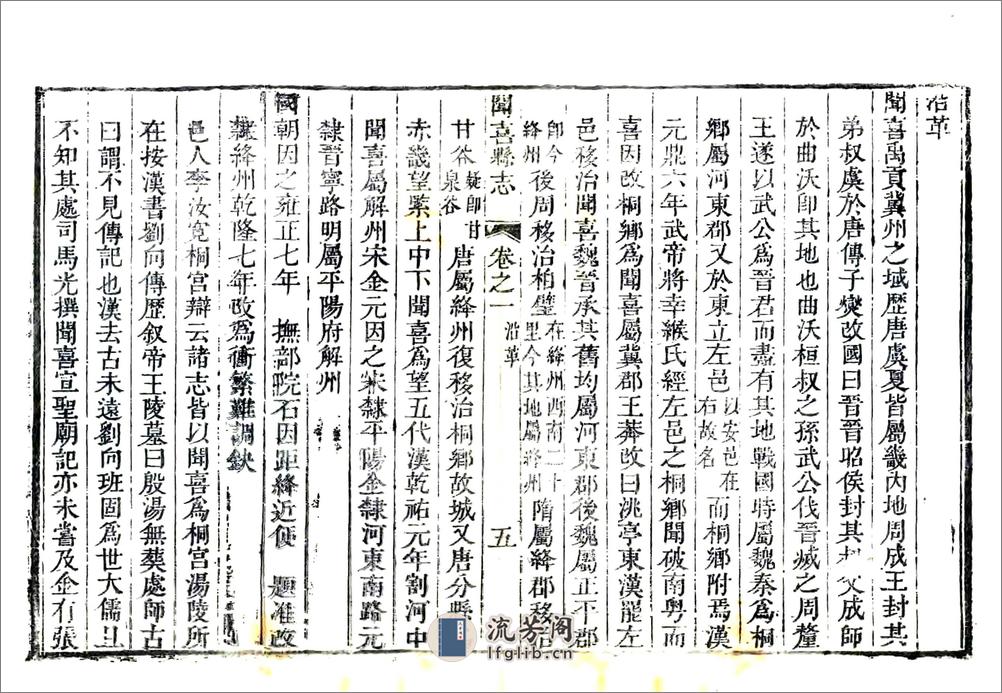 沿革
聞喜禹貢冀州之域歷唐虞夏皆屬畿內地周成王封其
弟叔虞於唐傳子燮改國曰晉晉昭侯封其叔父成師
於曲沃卽其地也曲沃桓叔之孫武公伐晉滅之周釐
王遂以武公爲晉君而盡有其地戰國時屬魏秦爲桐
鄉屬河東郡又於東立左邑以安邑在右故名而桐鄉附焉漢
元鼎六年武帝將幸緱氏經左邑之桐鄉聞破南粤而
喜因改桐鄉爲聞喜屬冀郡王莽改曰洮亭東漢罷左
邑移治聞喜魏晉承其舊均屬河東郡後魏屬正平郡
卽今絳州後周移治柏壁在絳州西南二十里今其地屬絳州隋屬絳郡移治
聞喜縣志 卷之一 沿革 五
甘谷疑卽甘泉谷唐屬絳州復移治桐鄉故城又唐分縣
赤畿望緊上中下聞喜爲望五代漢乾祐元年割河中
聞喜屬解州宋金元因之宋隸平陽金隸河東南路元
隸晉寧路明屬平陽府解州
國朝因之雍正七年 撫部院石因距絳近便 題准改
隸絳州乾隆七年改爲衝繁難調缺
邑人李汝寬桐宮辯云諸志皆以聞喜爲桐宮湯陵所
在按漢書劉向傳歷叙帝王陵墓曰殷湯無葬處師古
曰謂不見傳記也漢去古未遠劉向班固爲世大儒且
不知其處司馬光撰聞喜宣聖廟記亦未嘗及金有張
流芳閣
lfglib.cn